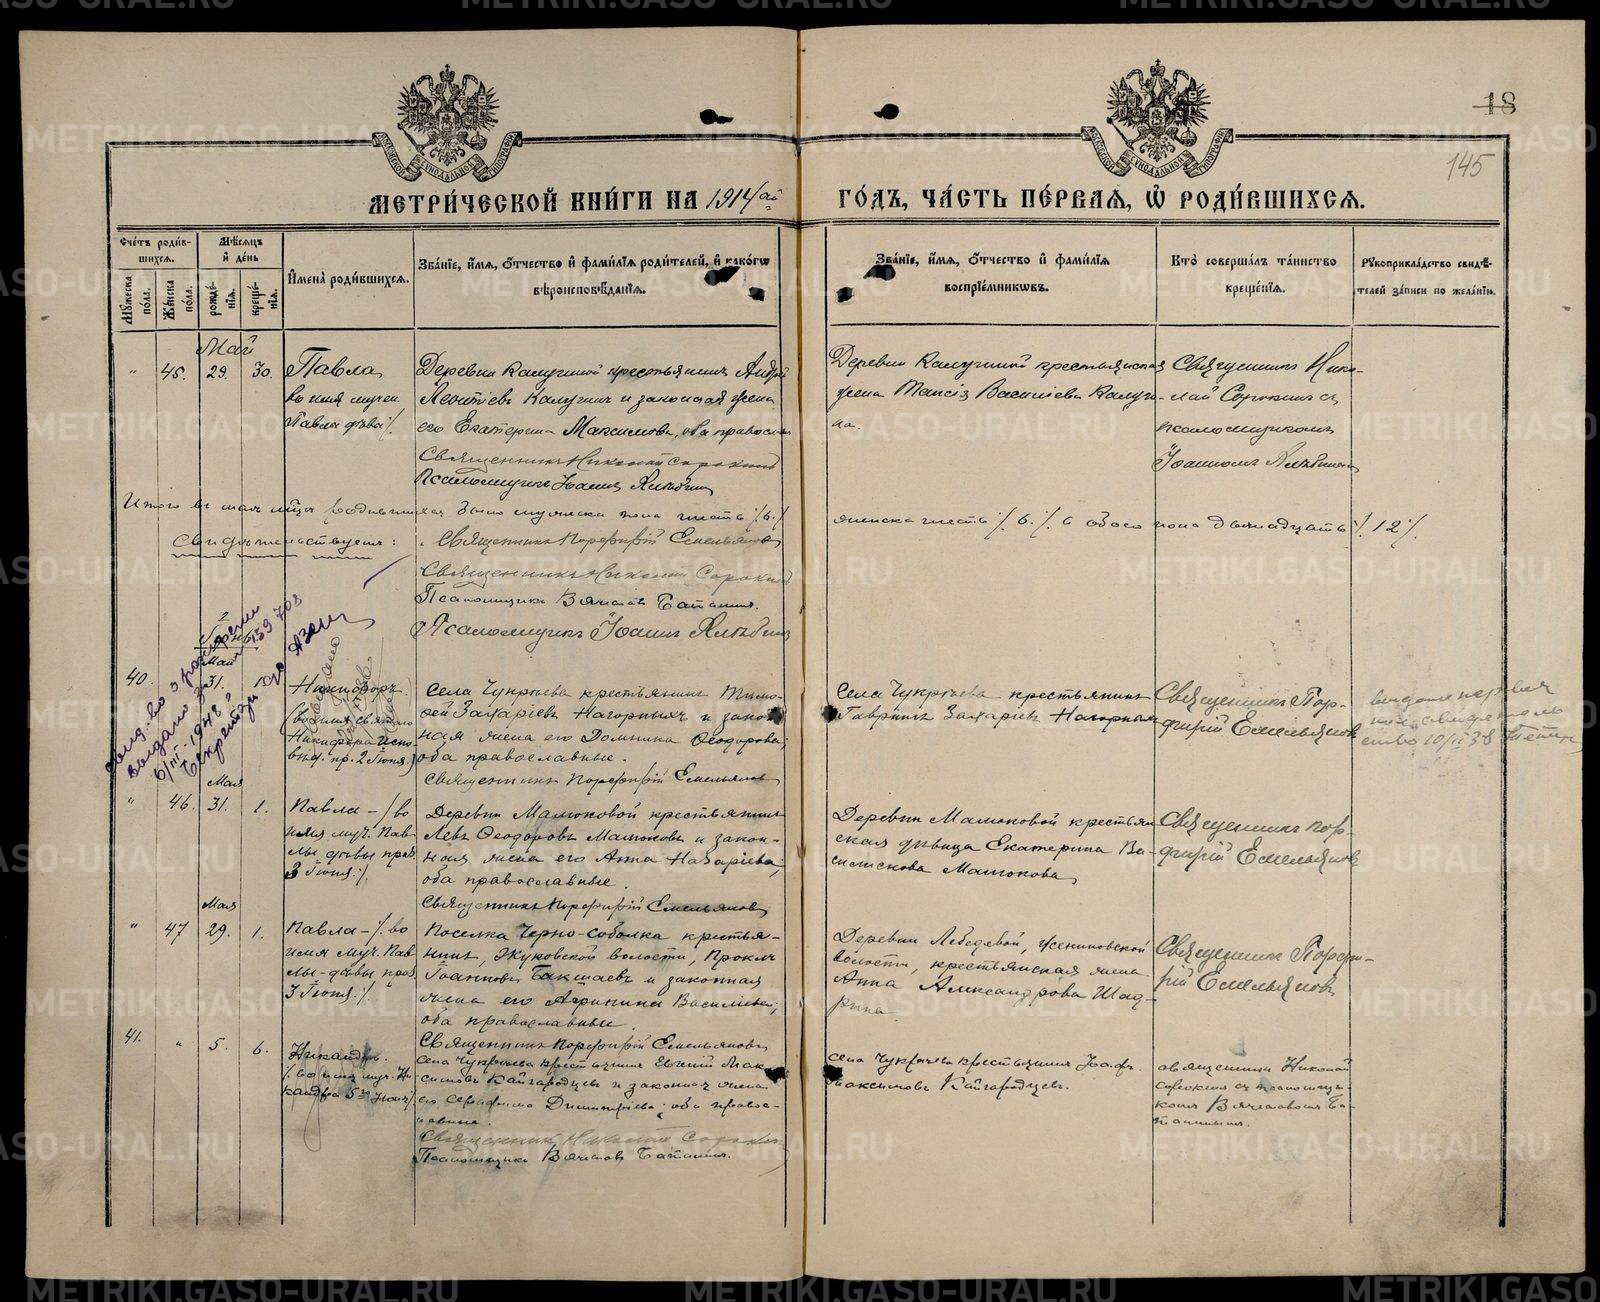 18
145
МЕТРИ́ЧЕСКОЙ КНИ́ГИ НА 1914/ый ГО́ДЪ, ЧА́СТЬ ПЕ́РВАЯ, Ѿ РОДИ́ВШИХСЯ.
Сче́тъ роди́вшихся.
Му́жеска по́ла.
Же́нска по́ла.
Мѣ́сяцъ и де́нь
рожде́нїя.
креще́нїя.
И҆мена̀ роди́вшихся.
Зва́нїе, и҆́мя, ѻ҆́тчество и҆ фами́лїя роди́телей, и҆ како́гѡ
вѣроисповѣ́данїя.
Зва́нїе, и҆́мя, ѻ҆́тчество и҆ фами́лїя
воспрїе́мникѡвъ.
Кто̀ соверша́лъ та́инство
креще́нїя.
Рꙋкоприкла́дство свидѣ́-
телей за́писи по жела́нїю.
Май
" 45. 29. 30.
Павла
во имя мучен.
Павла дѣва
Деревни Калугиной крестьянинъ Андрей
Леонтіевъ Калугинъ и законная жена
его Екатерина Максимова, оба православн
Священникъ Николай Сорокинъ
Псаломщикъ Іоаннъ
Деревни Калугиной крестьянская
жена Таисія Васильева Калуги-
на.
Священникъ Нико-
лай Сорокинъ съ
псаломщикомъ
Іоанномъ
Итого въ маѣ м҃цѣ родившихся было мужска пола шесть /6./
женска шесть /.6./. а обоего пола двѣнадцать /.12/.
Свидѣтельствуемъ:
Священникъ Порфирій Емельяновъ
Священникъ Николай Сорокинъ
Псаломщикъ Вячеславъ
Псаломщикъ Іоаннъ
Іюнь
Май
40. 31. 1.
Никифоръ.
(во имя святаго
Никифора испо-
вѣд. пр. 2 Іюня.)
Села Чукрѣева крестьянинъ Тимо-
ѳей Захаріевъ Нагорныхъ и закон-
ная жена его Домника Ѳеодорова;
оба православные.
Священникъ Порфирій Емельяновъ
Села Чукрѣева крестьянинъ
Гавріилъ Захаріевъ Нагорныхъ
Священникъ Пор-
фирій Емельяновъ
Свид-во о рождении
выдано
6/III-1948 г.
Мая
" 46. 31. 1.
Павла – /во
имя муч. Пав-
лы дѣвы праз.
3 Іюня./.
Деревни Малюковой крестьянинъ
Левъ Ѳеодоровъ Малюковъ и закон-
ная жена его Анна Назаріева;
оба православные.
Священникъ Порфирій Емельяновъ
Деревни Малюковой крестьян
ская дѣвица Екатерина Ва-
Малюкова
Священникъ Пор-
фирій Емельяновъ
Мая
" 47 29. 1.
Павла – /.во
имя муч. Пав
лы-дѣвы праз.
3 Іюня./.
Поселка Черно-соболка крестья-
нинъ, Жуковской волости, Проклъ
Іоанновъ Бакшаевъ и законная
жена его Агрипина Василіева;
оба православные.
Священникъ Порфирій Емельяновъ
Деревни Лебедевой,
волости, крестьянская жена
Анна Александрова Шад-
рина
Священникъ Порфи-
рій Емельяновъ
41. " 5. 6.
Никандръ.
/.во имя муч. Ни-
кандра 5го Іюня/
Села Чукрѣева крестьянинъ Евгеній Мак-
симовъ Кайгородцевъ и законная жена
его Серафима Димитріева; оба правос-
лавные.
Священникъ Николай Сорокинъ
Псаломщикъ Вячеславъ
Села Чукрѣева крестьянинъ
Максимовъ Кайгородцевъ.
Священникъ Николай
Сорокинъ съ псаломщи-
комъ Вячеславомъ
METRIKI.GASO-URAL.RU